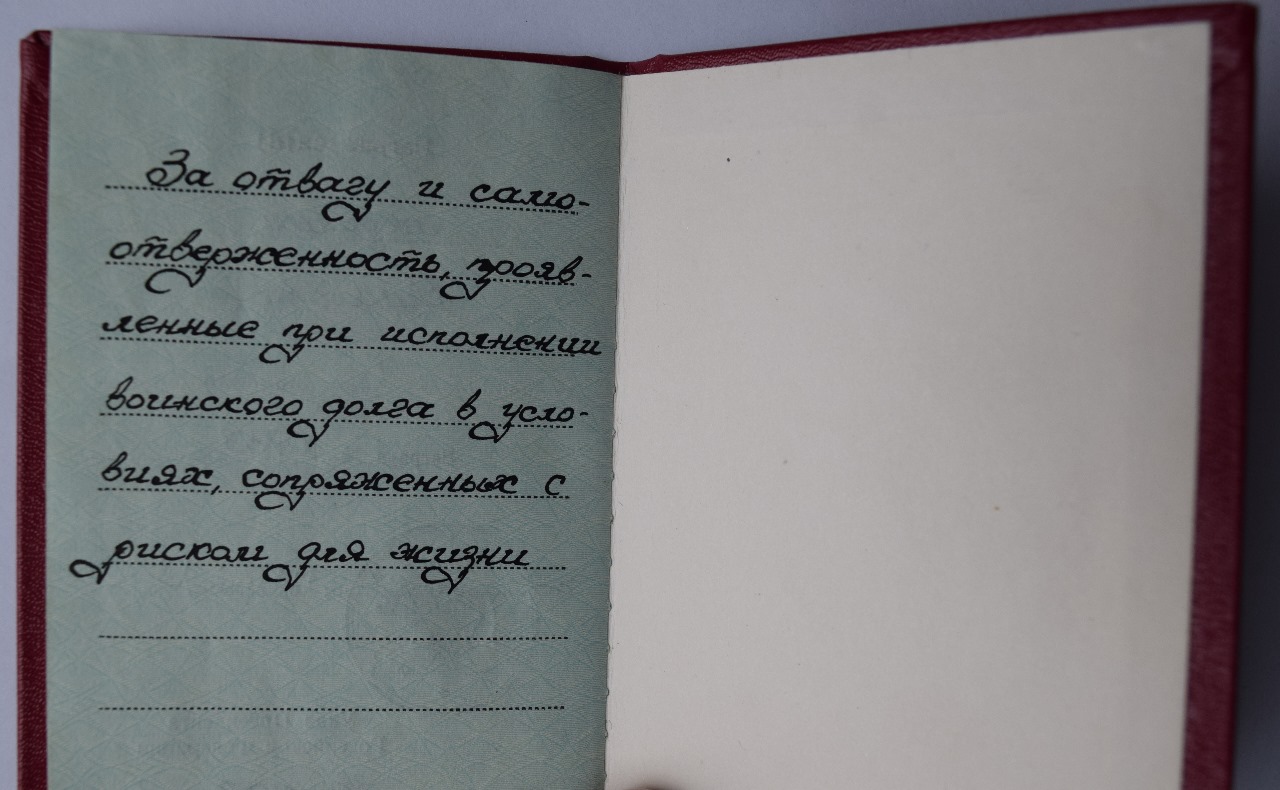 За отвагу и само-
отверженность, прояв-
ленные при исполнении
воинского долга в усло-
виях, сопряженных с
риском для жизни